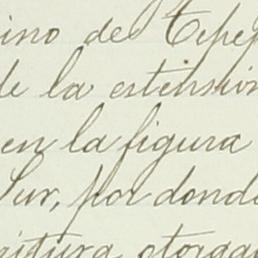 ino de Tepep
de la estensión
en la figura
Sur, por donde
critura otorga